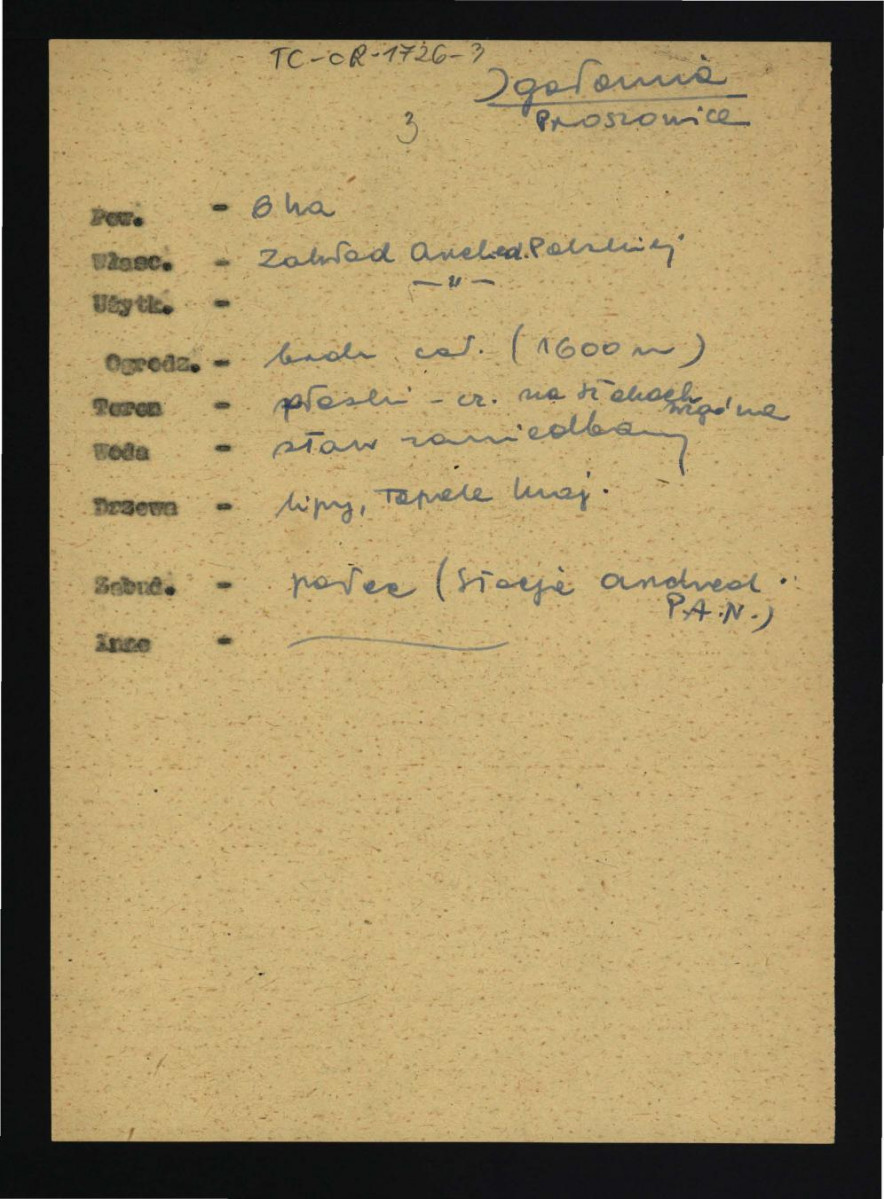 TC-OR-1726-3
Igołomia
Proszowice
3
Pow. - 8 ha
Własc. - Zakład Arched. Polskiej
Użytk. - —"—
Ogrodz. - brak cał. (1600 m)
Teren - płaski - cz. na stokach
wzgórza
Woda - staw zaniedbany
Drzewa - lipy, Topole kraj.
Zabud. - pałac (Stacja Archeol.
P.A.N.)
Inne -